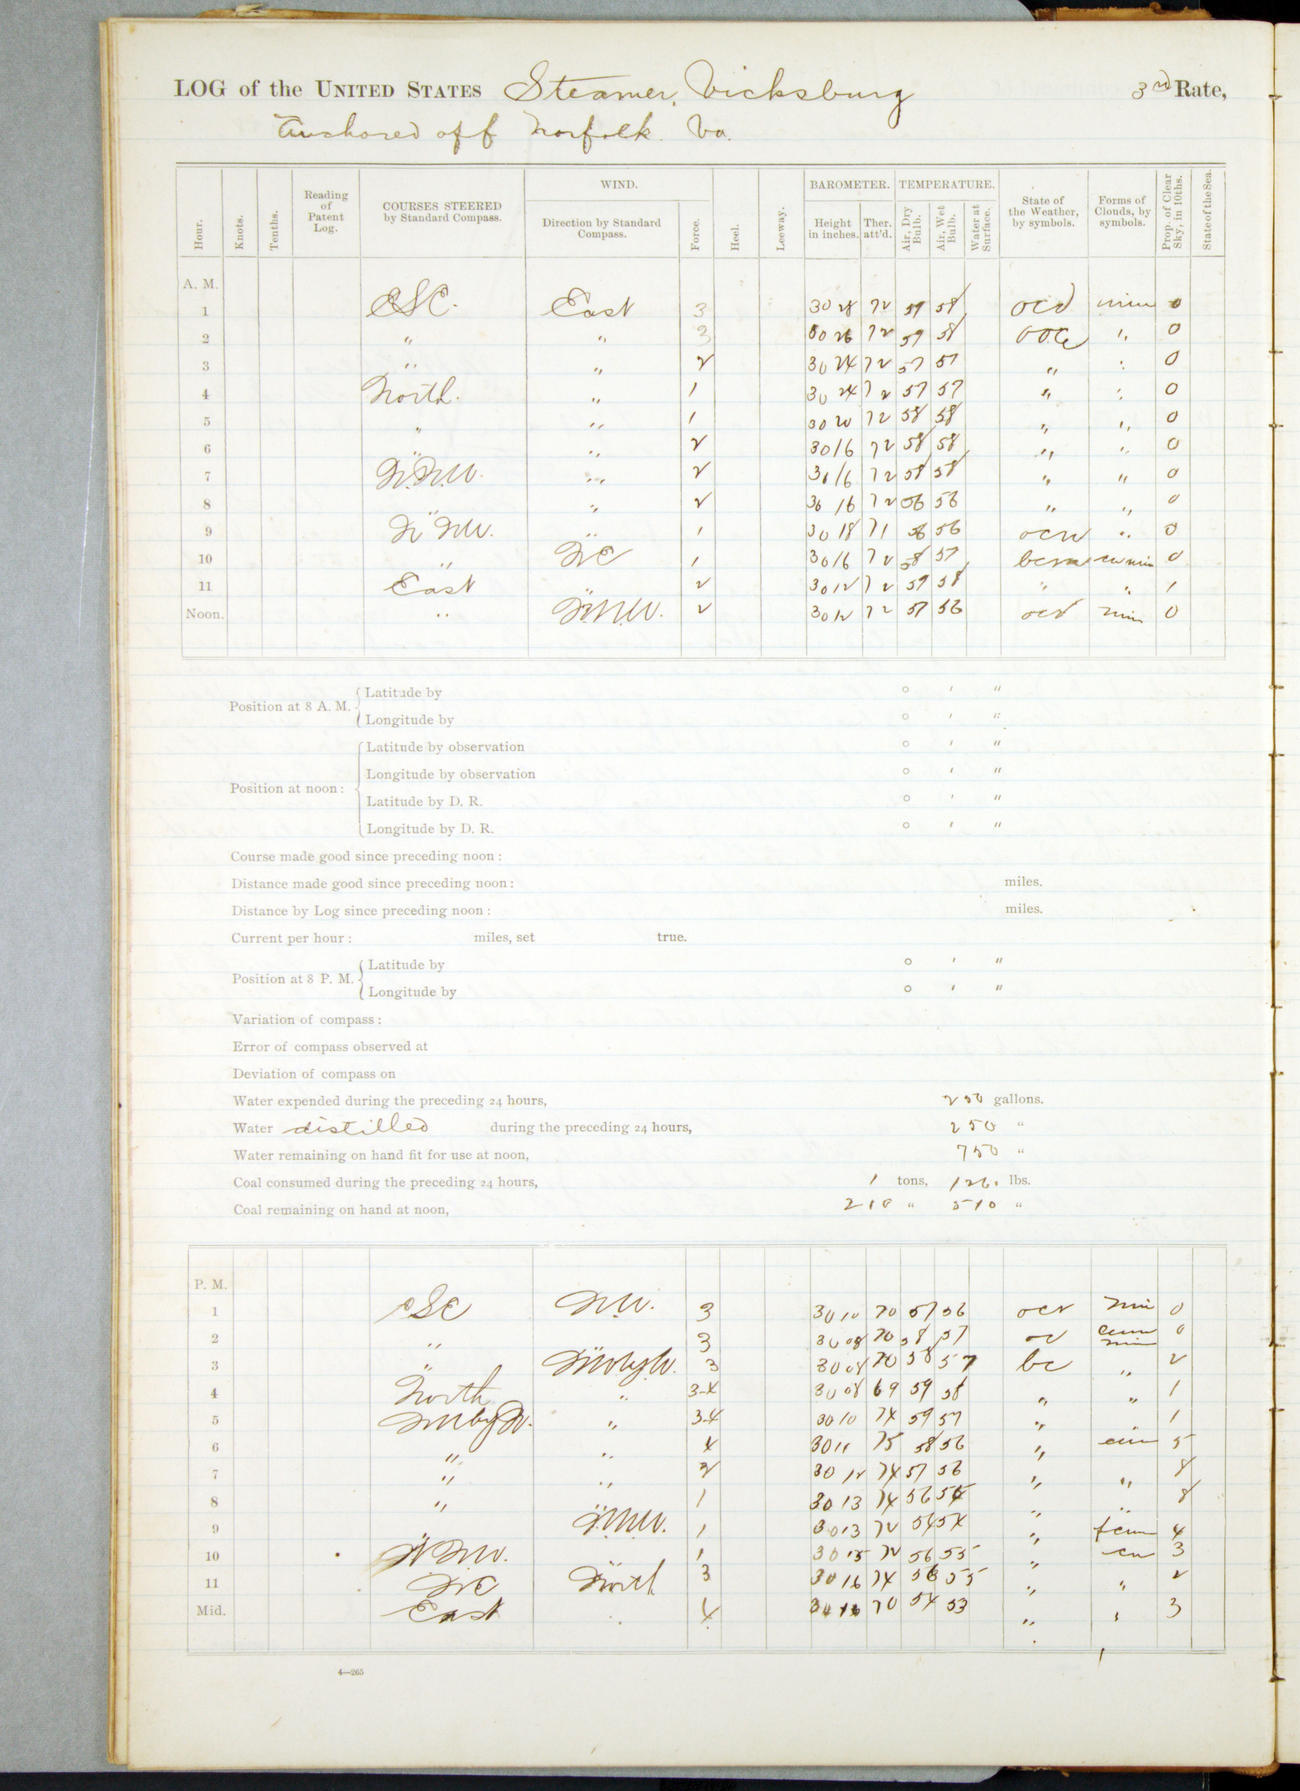 LOG of the UNITED STATES Steamer, Vicksburg 3rd Rate,
Anchored off Norfolk. Va.
Hour. Knots. Tenths. Reading of Patent Log. COURSES STEERED by Standard Compass. WIND. Direction by Standard Compass. Force. Heel. Leeway. BAROMETER. Height in inches. Ther. att'd. TEMPERATURE. Air, Dry Bulb. Air, Wet Bulb. Water at Surface. State of the Weather, by symbols. Forms of Clouds, by symbols. Prop. of Clear Sky, in 10ths. State of the Sea.
A. M.
1 ESE. East 3 30 28 72 59 58 ocd nim 0
2 " " 3 30 26 72 59 58 " 0
3 " " 2 30 24 72 57 57 " " 0
4 North. " 1 30 24 72 57 57 " " 0
5 " " 1 30 20 72 58 58 " " 0
6 " " 2 30 16 72 58 58 " " 0
7 N.N.W. " 2 30 16 72 58 58 " " 0
8 " " 2 30 16 72 56 56 " " 0
9 N NW. " 1 30 18 71 56 56 " 0
10 " NE 1 30 16 72 58 57 0
11 East " 2 30 12 72 59 58 " " 1
Noon. " N.N.W. 2 30 12 72 57 56 ocr nim 0
Position at 8 A. M. Latitude by ° ' "
Longitude by ° ' "
Position at noon: Latitude by observation ° ' "
Longitude by observation ° ' "
Latitude by D. R. ° ' "
Longitude by D. R. ° ' "
Course made good since preceding noon:
Distance made good since preceding noon: miles.
Distance by Log since preceding noon: miles.
Current per hour: miles, set true.
Position at 8 P. M. Latitude by ° ' "
Longitude by ° ' "
Variation of compass:
Error of compass observed at
Deviation of compass on
Water expended during the preceding 24 hours, 250 gallons.
Water distilled during the preceding 24 hours, 250 "
Water remaining on hand fit for use at noon, 750 "
Coal consumed during the preceding 24 hours, 1 tons, 120. lbs.
Coal remaining on hand at noon, 210 " 510 "
P. M.
1 ESE NW. 3 30 10 70 57 56 ocr nim 0
2 " 3 30 08 70 58 57 oc cum nim 0
3 " NW by W. 3 30 08 70 58 57 bc " 2
4 North " 3-4 30 08 69 59 58 " " 1
5 NW by N. " 3-4 30 10 74 59 57 " 1
6 " " 4 30 11 75 58 56 " 5
7 " " 2 30 12 74 57 56 " " 8
8 " 1 30 13 74 56 54 " " 8
9 N.N.W. 1 30 13 72 54 54 " 4
10 N NW. 1 30 15 72 56 55 " cu 3
11 NE North 3 30 16 74 56 55 " " 2
Mid. East " 4 30 16 70 54 53 " " 3
4—265